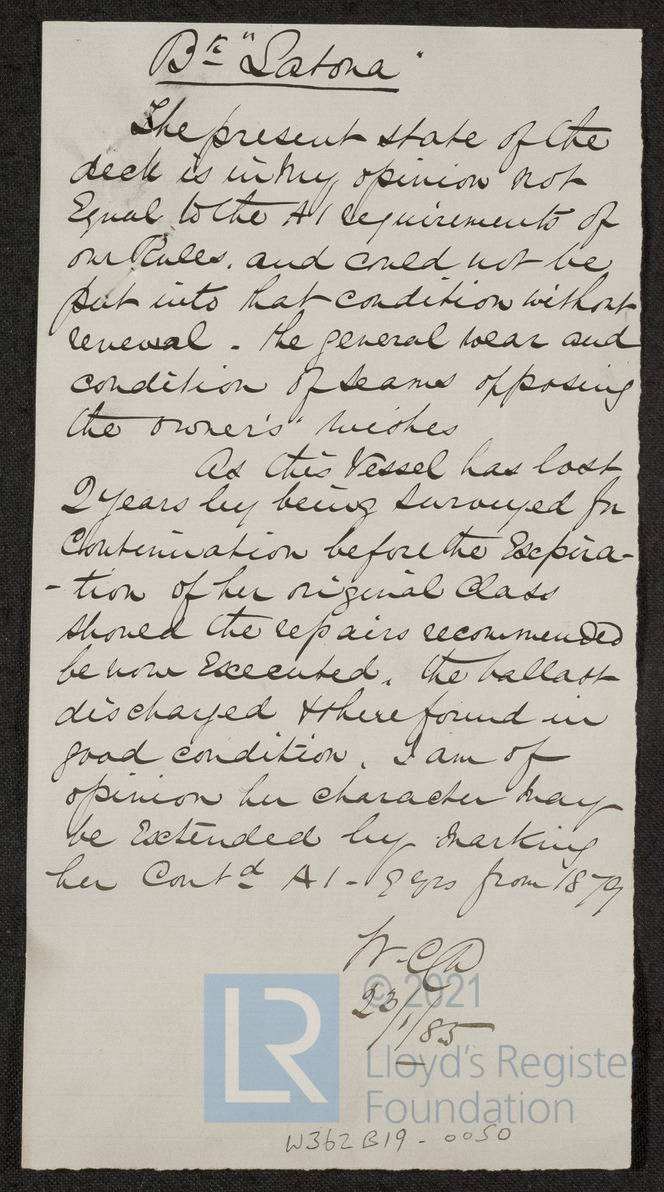 Bk "Latona"
The present state of the
deck is in my opinion not
Equal to the A1 requirements of
our Rules. and could not be
put into that condition without
renewal - the general wear and
condition of seams opposing
the owner's" wishes
As this Vessel has lost
2 years by being surveyed for
Continuation before the Expira-
-tion of her original Class
should the repairs recommended
be now Executed, the ballast
discharged & there found in
good condition, I am of
opinion her character may
be Extended by marking
her Contd A1 - 9 yrs from 1879
23/1/85
LR
© 2021
Lloyd's Register
Foundation
W362B19-0050